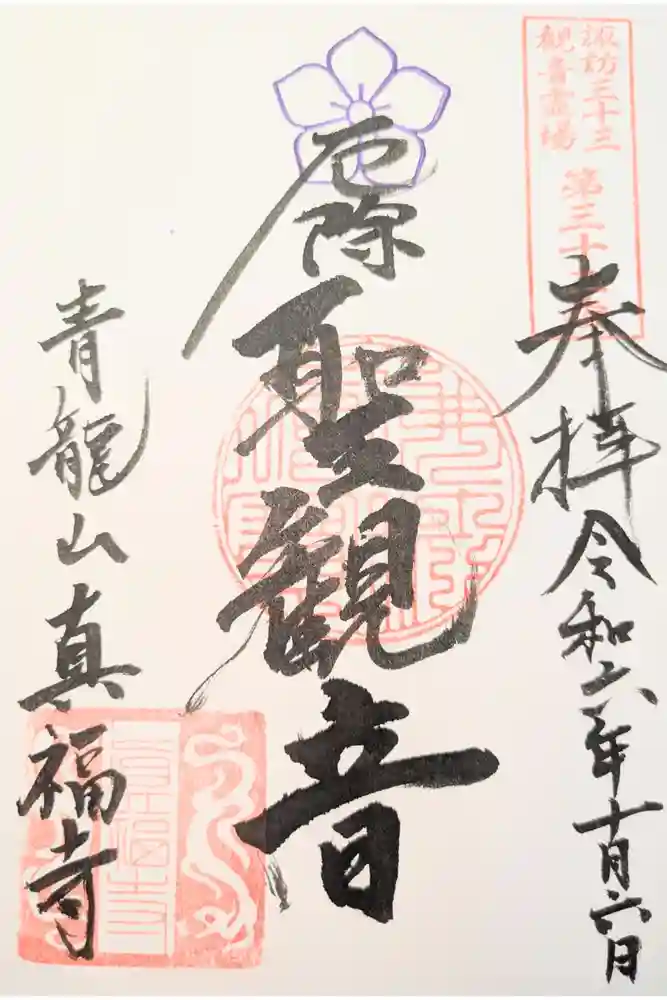 諏訪三十三
観音霊場
第三十
奉拝
令和六年十月六日
厄除
聖観音
青龍山
真福寺